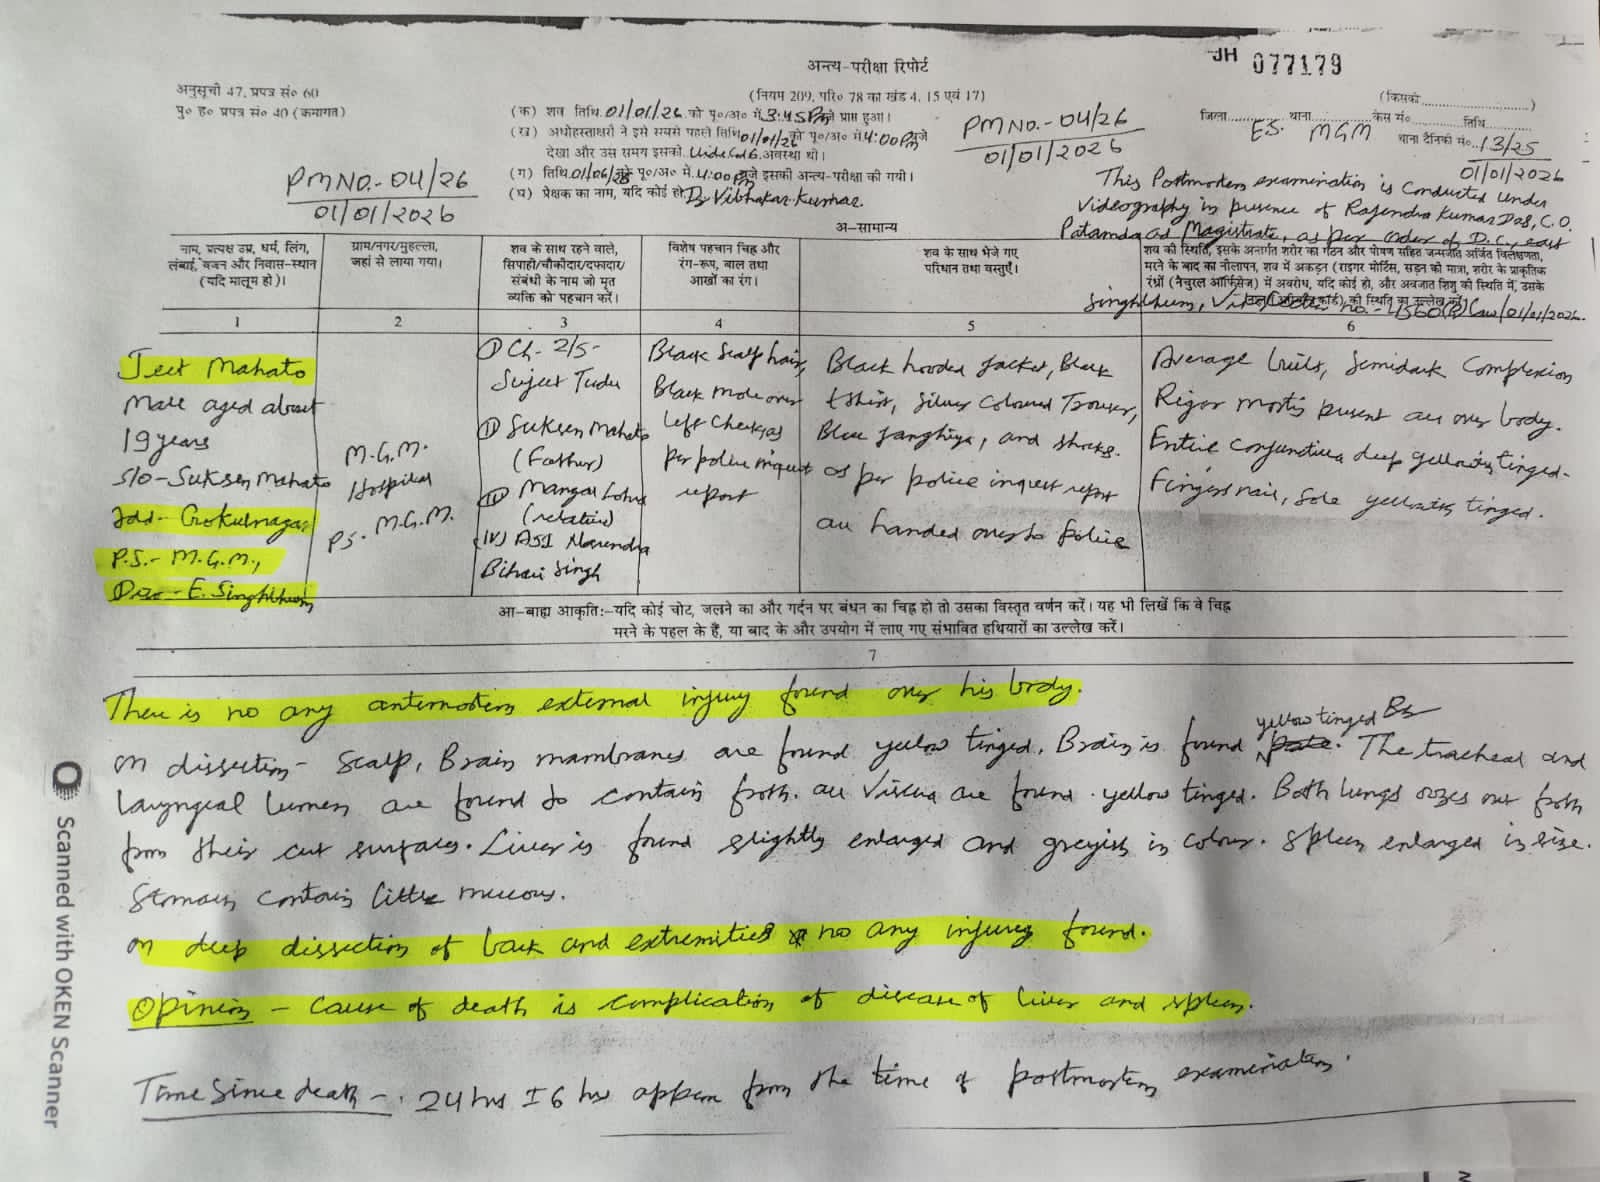 JH 077179
अन्त्य-परीक्षा रिपोर्ट
अनुसूची 47, प्रपत्र सं० 60
पु० ह० प्रपत्र सं० 40 (क्रमागत)
(नियम 209, परि० 78 का खंड 4, 15 एवं 17)
(किसको..............................)
(क) शव तिथि 01/01/26 को पू०/अ० में 3:45 Pm बजे प्राप्त हुआ।
(ख) अधोहस्ताक्षरी ने इसे सबसे पहले तिथि 01/01/26 को पू०/अ० में 4:00 Pm बजे
देखा और उस समय इसकी अवस्था थी।
(ग) तिथि को पू०/अ० में 4:00 Pm बजे इसकी अन्त्य-परीक्षा की गयी।
(घ) प्रेक्षक का नाम, यदि कोई हो Dr Vibhakar Kumar
जिला ES. थाना MGM केस सं० तिथि
थाना दैनिकी सं० 13/25
01/01/2026
PM NO.- 04/26
01/01/2026
PM NO.- 04/26
01/01/2026
This Postmortem examination is conducted under
Videography in presence of Rajendra Kumar Das, C.O.
Patamda and Magistrate, as per order of D.C., east
Singhbhum, no.- 01/01/2026.
अ-सामान्य
नाम, प्रत्यक्ष उम्र, धर्म, लिंग,
लंबाई, वजन और निवास-स्थान
(यदि मालूम हो)।
ग्राम/नगर/मुहल्ला,
जहां से लाया गया।
शव के साथ रहने वाले,
सिपाही/चौकीदार/दफादार/
संबंधी के नाम जो मृत
व्यक्ति को पहचान करें।
विशेष पहचान चिह्न और
रंग-रूप, बाल तथा
आखों का रंग।
शव के साथ भेजे गए
परिधान तथा वस्तुएँ।
शव की स्थिति, इसके अन्तर्गत शरीर का गठन और पोषण सहित जन्मजात अर्जित विलक्षणता,
मरने के बाद का नीलापन, शव में अकड़न (राइगर मोर्टिस, सड़न की मात्रा, शरीर के प्राकृतिक
रंध्रों (नैचुरल ऑर्फिसेज) में अवरोध, यदि कोई हो, और अवजात शिशु की स्थिति में, उसके
की स्थिति का उल्लेख करें।
1 2 3 4 5 6
Jeet Mahato
Male aged about
19 years
S/o- Suksen Mahato
Add- Gokulnagar
P.S.- M.G.M.,
Dis- E. Singhbhum
M.G.M.
Hospital
P.S. M.G.M.
(I) Ch- 2/5-
Sujeet Tudu
(II) Suksen Mahato
(Father)
Mangal
(relative)
(IV) ASI Narendra
Bihari Singh
Black Scalp hair,
Black mole over
left cheek, as
per police inquest
report
Black hooded Jacket, Black
tshirt, Silver Coloured Trouser,
Blue Janghiya, and
as per police inquest report
all handed over to Police
Average built, Semidark Complexion
Rigor mortis present all over body.
Entire conjunctiva deep yellowish tinged.
Fingers nail, Sole yellowish tinged.
आ-बाह्य आकृति:-यदि कोई चोट, जलने का और गर्दन पर बंधन का चिह्न हो तो उसका विस्तृत वर्णन करें। यह भी लिखें कि वे चिह्न
मरने के पहल के हैं, या बाद के और उपयोग में लाए गए संभावित हथियारों का उल्लेख करें।
7
There is no any antemortem external injury found over his body.
On dissection- Scalp, Brain mambranes are found yellow tinged. Brain is found yellow tinged. The tracheal and
Laryngeal lumen are found to contain froth. all Viscera are found yellow tinged. Both lungs oozes out froth
from their cut surfaces. Liver is found slightly enlarged and greyish in colour. Spleen enlarged in size.
Stomach contain little mucous.
On deep dissection of back and extremities no any injury found.
Opinion - cause of death is complication of disease of liver and spleen.
Time Since death - 24 hrs ± 6 hrs appox from the time of postmortem examination.
Scanned with OKEN Scanner